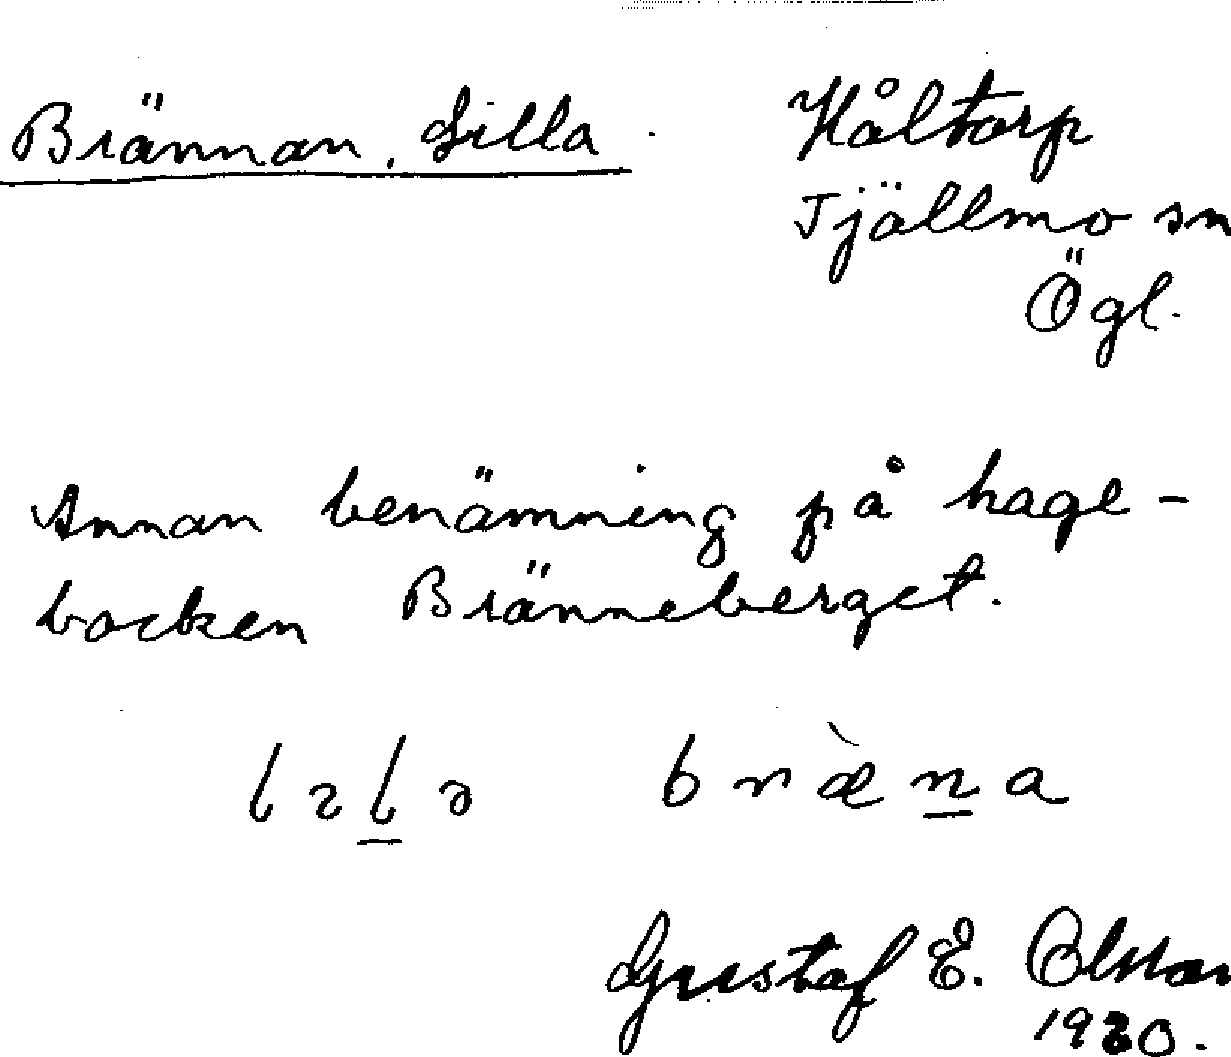 Brännan, Lilla. Håltorp
Tjällmo sn
Ögl.
Annan benämning på hage-
backen Bränneberget.
Gustaf E. Olsson
1930.